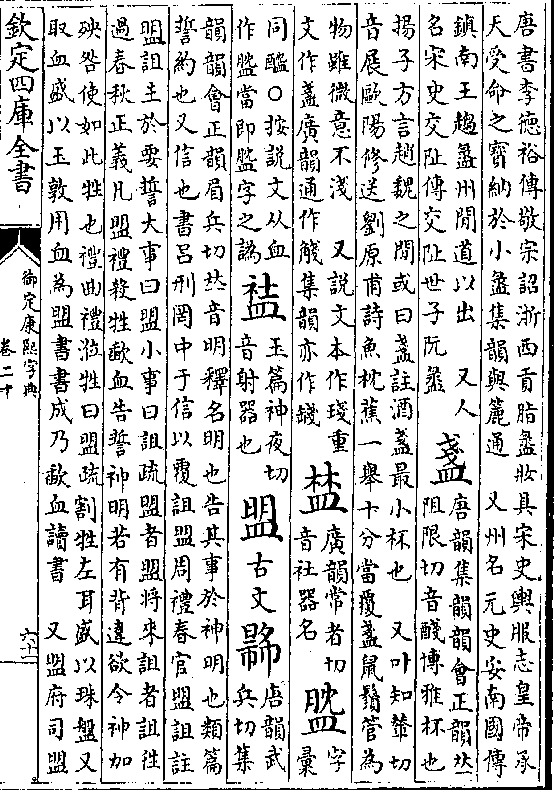 唐書李德裕傳敬宗詔浙西貢脂盝妝具宋史輿服志皇帝承
天受命之寶納於小盝集韻與簏通 又州名元史安南國傳
鎮南王趨盝州間道以出 又人
名宋史交阯傳交阯世子阮盝
盞
唐韻集韻韻會正韻𠀤
阻限切音醆博雅杯也
揚子方言趙魏之間或曰盞註酒盞最小杯也 又叶知輦切
音展歐陽修送劉原甫詩魚枕蕉一舉十分當覆盞鼠鬚管為
物雖微意不淺 又說文本作琖重
文作盞廣韻通作 集韻亦作
廣韻常者切
音社器名
字
彙
同醯○按說文从血
作 當即 字之譌
玉篇神夜切
音射器也
盟
古文
唐韻武
兵切集
韻韻會正韻眉兵切𠀤音明釋名明也告其事於神明也類篇
誓約也又信也書呂刑罔中于信以覆詛盟周禮春官盟詛註
盟詛主於要誓大事曰盟小事曰詛疏盟者盟將來詛者詛往
過春秋正義凡盟禮殺牲歃血告誓神明若有背違欲令神加
殃咎使如此牲也禮曲禮涖牲曰盟疏割牲左耳盛以珠盤又
取血盛以玉敦用血為盟書書成乃歃血讀書 又盟府司盟
欽定四庫全書
御定康熙字典
卷二十